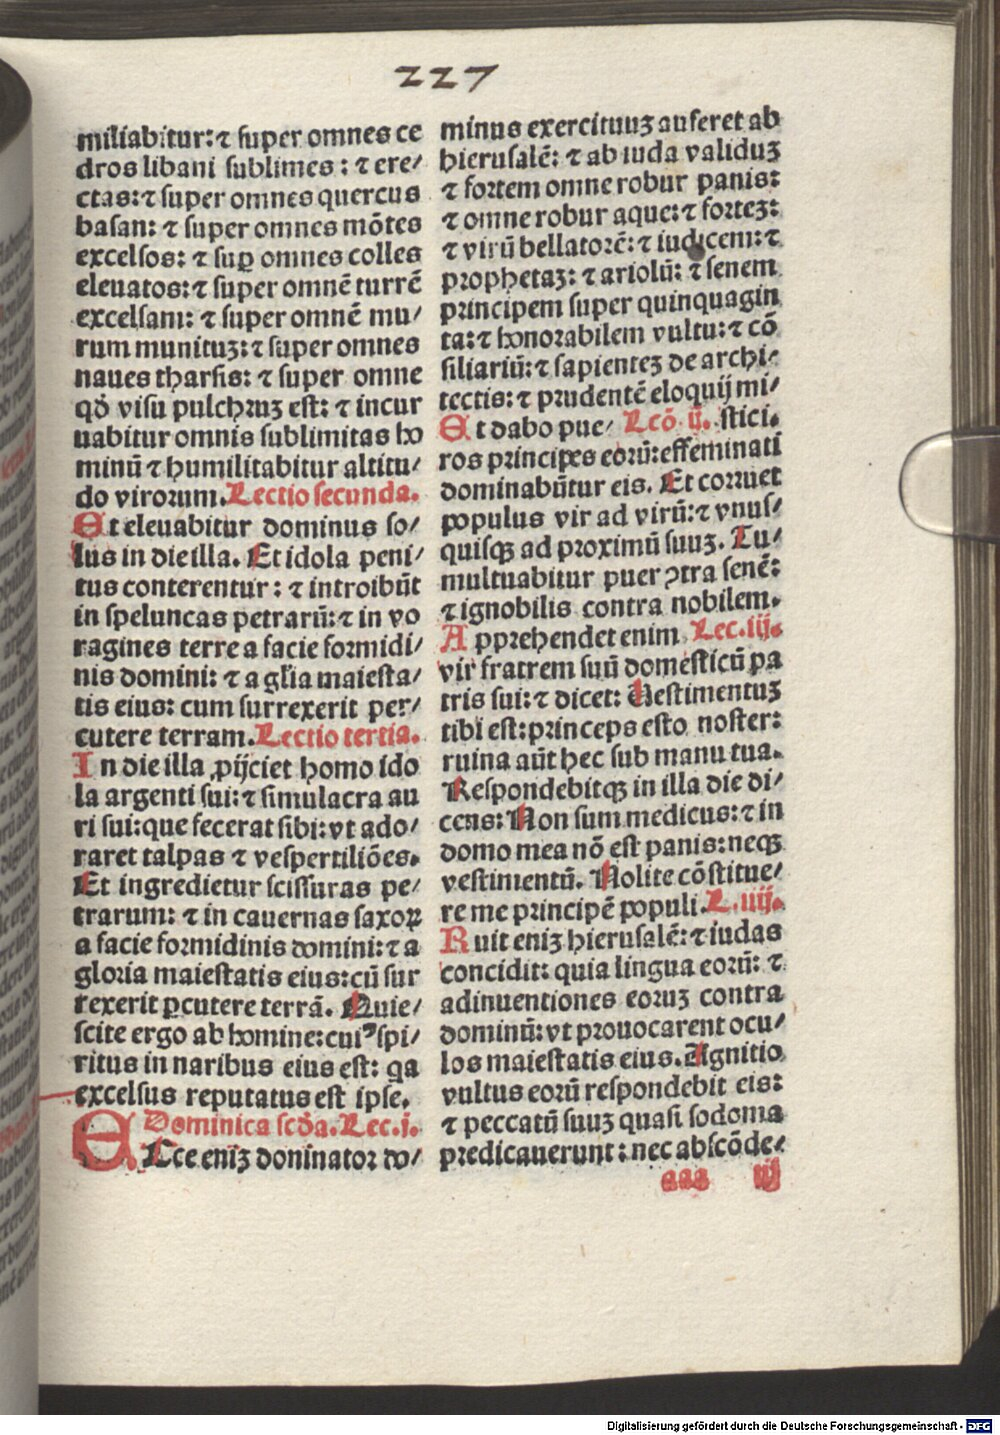 227
miliabitur: ⁊ super omnes ce
dros libani sublimes: ⁊ ere/
ctas: ⁊ super omnes quercus
basan: ⁊ super omnes mõtes
excelsos: ⁊ suꝑ omnes colles
eleuatos: ⁊ super omnẽ turrẽ
excelsam: ⁊ super omnẽ mu/
rum munituꝫ: ⁊ super omnes
naues tharsis: ⁊ super omne
qđ visu pulchruꝫ est: ⁊ incur
uabitur omnis sublimitas ho
minũ ⁊ humilitabitur altitu/
do virorum. Lectio secunda.
Et eleuabitur dominus so/
lus in die illa. Et idola peni/
tus conterentur: ⁊ introibũt
in speluncas petrarũ: ⁊ in vo
ragines terre a facie formidi/
nis domini: ⁊ a gl'ia maiesta/
tis eius: cum surrexerit per/
cutere terram. Lectio tertia.
In die illa ꝓijciet homo ido
la argenti sui: ⁊ simulacra au
ri sui: que fecerat sibi: vt ado/
raret talpas ⁊ vespertiliões.
Et ingredietur scissuras pe/
trarum: ⁊ in cauernas saxoꝝ
a facie formidinis domini: ⁊ a
gloria maiestatis eius: cũ sur
rexerit ꝑcutere terrã. Quie/
scite ergo ab homine: cuiꝰ spi/
ritus in naribus eius est: qa
excelsus reputatus est ipse.
Dominica scđa. Lec. j.
ECce eniꝫ doninator do/
minus exercituuꝫ auferet ab
hierusalẽ: ⁊ ab iuda validuꝫ
⁊ fortem omne robur panis:
⁊ omne robur aque: ⁊ forteꝫ:
⁊ virũ bellatorẽ: ⁊ iudicem: ⁊
prophetaꝫ: ⁊ ariolũ: ⁊ senem
principem super quinquagin
ta: ⁊ honorabilem vultu: ⁊ cõ
siliariũ: ⁊ sapienteꝫ de archi/
tectis: ⁊ prudentẽ eloquij mi/
Et dabo pue/ Lcõ ij. stici.
ros principes eorũ: effeminati
dominabũtur eis. Et corruet
populus vir ad virũ: ⁊ vnus/
quisqꝫ ad proximũ suuꝫ. Tu/
multuabitur puer ꝯtra senẽ:
⁊ ignobilis contra nobilem.
Apprehendet enim Lec. iij.
vir fratrem suũ domesticũ pa
tris sui: ⁊ dicet: Uestimentuꝫ
tibi est: princeps esto noster:
ruina aũt hec sub manu tua.
Respondebitqꝫ in illa die di/
cens: Non sum medicus: ⁊ in
domo mea nõ est panis: neqꝫ
vestimentũ. Nolite cõstitue/
re me principẽ populi. L. iiij.
Ruit eniꝫ hierusalẽ: ⁊ iudas
concidit: quia lingua eorũ: ⁊
adinuentiones eoruꝫ contra
dominũ: vt prouocarent ocu/
los maiestatis eius. Agnitio
vultus eorũ respondebit eis:
⁊ peccatũ suuꝫ quasi sodoma
predicauerunt: nec abscõde/
aaa iij
Digitalisierung gefördert durch die Deutsche Forschungsgemeinschaft - DFG